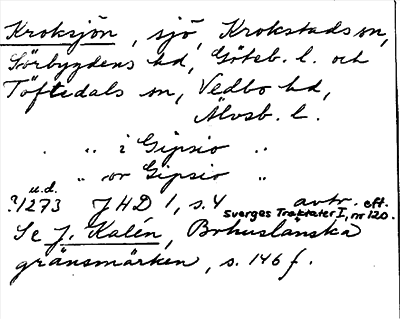 Kroksjön, sjö, Krokstads sn,
Sörbygdens hd, Göteb. l. och
Töftedals sn, Vedbo hd,
Älvsb. l.
. „ i Gipsio „
„ or Gipsio „
u.d.
?1273 JHD 1, s. 4 avtr. eft.
Sverges Traktater I, nr 120.
Se J. Kalén, Bohuslänska
gränsmärken, s. 146 f.